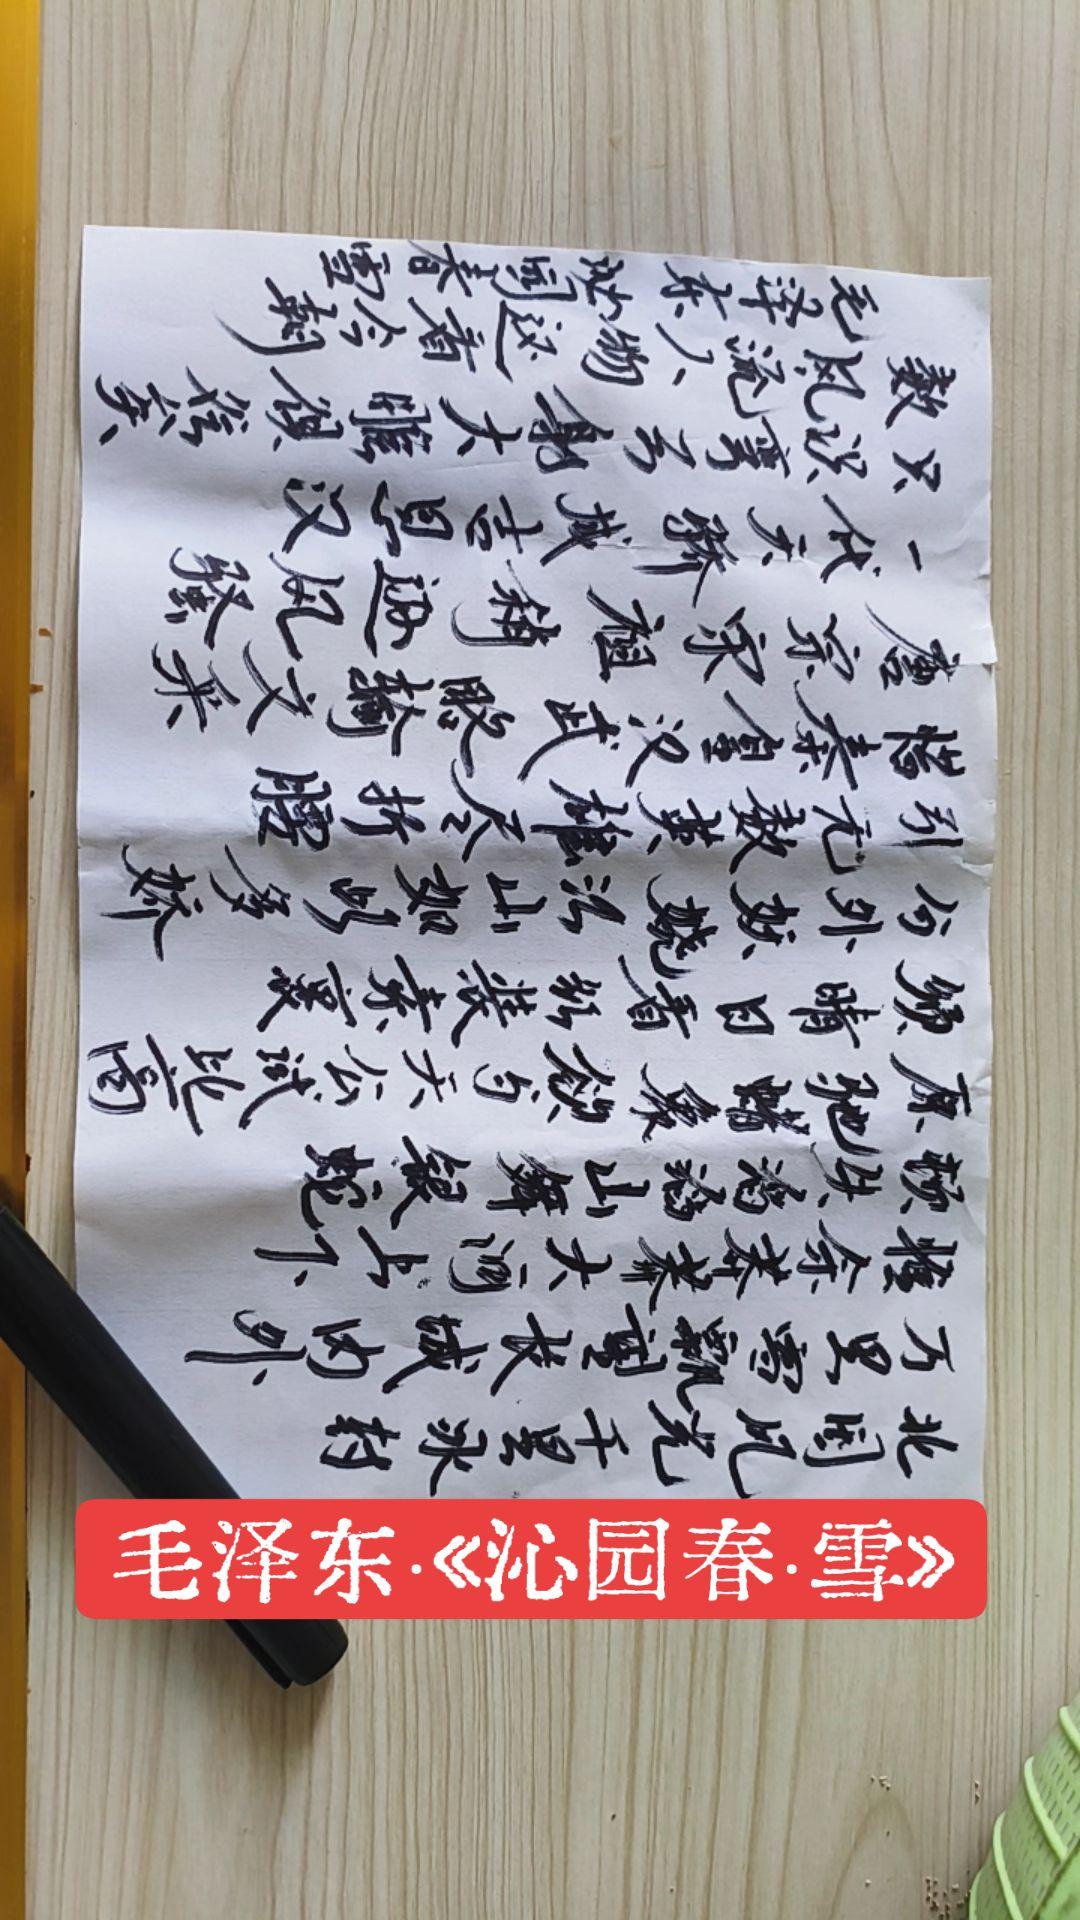 北国风光千里冰封
万里雪飘望长城内外
惟余莽莽大河上下
顿失滔滔山舞银蛇
原驰蜡象欲与天公试比高
须晴日看红装素裹
分外妖娆江山如此多娇
引无数英雄折腰
惜秦皇汉武略输文采
唐宗宋祖稍逊风骚
一代天骄成吉思汗
只识弯弓射大雕俱往矣
数风流人物还看今朝
毛泽东沁园春雪
毛泽东·《沁园春·雪》